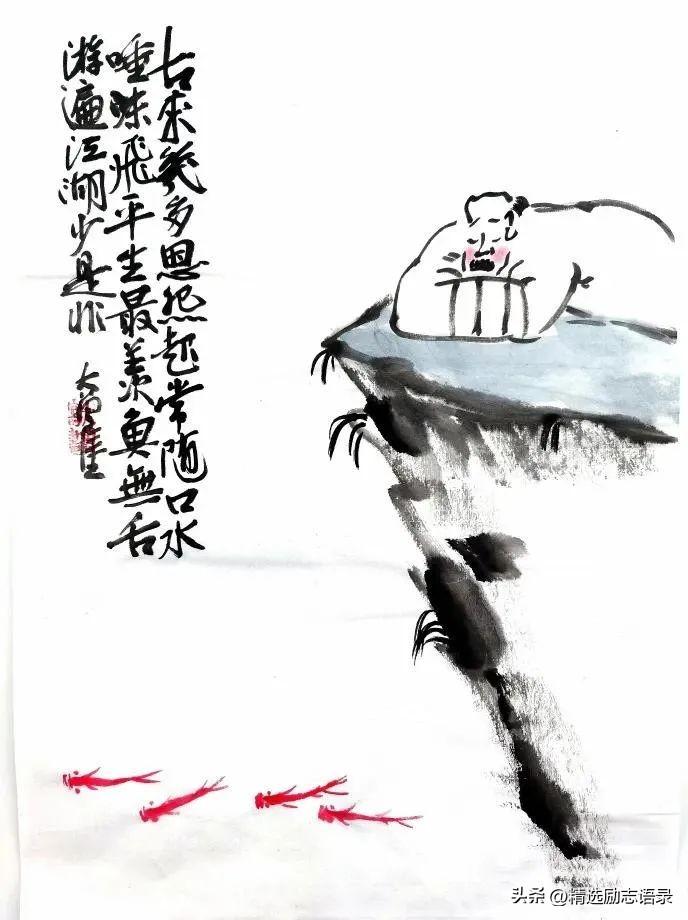 古來幾多恩怨起常随口水
唾沫飛平生最羡魚無舌
游遍江湖少是非
头条 @精选励志语录